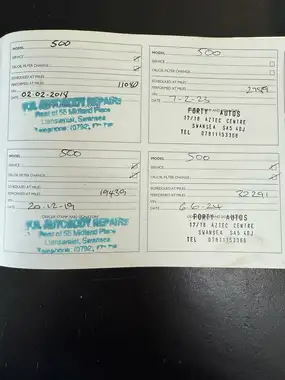 MODEL 500
SERVICE
OIL/OIL FILTER CHANGE
SCHEDULED AT MILES
PERFORMED AT MILES 11040
ON
DATE 02-02-2018
AUTOBODY REPAIRS
Rear of 55 Midland Place
Llansamlet, Swansea
Telephone: (0792)
MODEL 500
SERVICE
OIL/OIL FILTER CHANGE
SCHEDULED AT MILES
PERFORMED AT MILES
DATE 7-2-23
FORTY AUTOS
17/18 AZTEC CENTRE
SWANSEA SA5 4DJ
TEL
MODEL 500
SERVICE
OIL/OIL FILTER CHANGE
SCHEDULED AT MILES
PERFORMED AT MILES 19439
ON
DATE 20-12-19
DEALER STAMP AND SIGNATURE
AUTOBODY REPAIRS
Rear of 55 Midland Place
Llansamlet, Swansea
Telephone: (0792)
MODEL 500
SERVICE
OIL/OIL FILTER CHANGE
SCHEDULED AT MILES
PERFORMED AT MILES 32291
ON
DATE 6-6-24
FORTY AUTOS
17/18 AZTEC CENTRE
SWANSEA SA5 4DJ
TEL